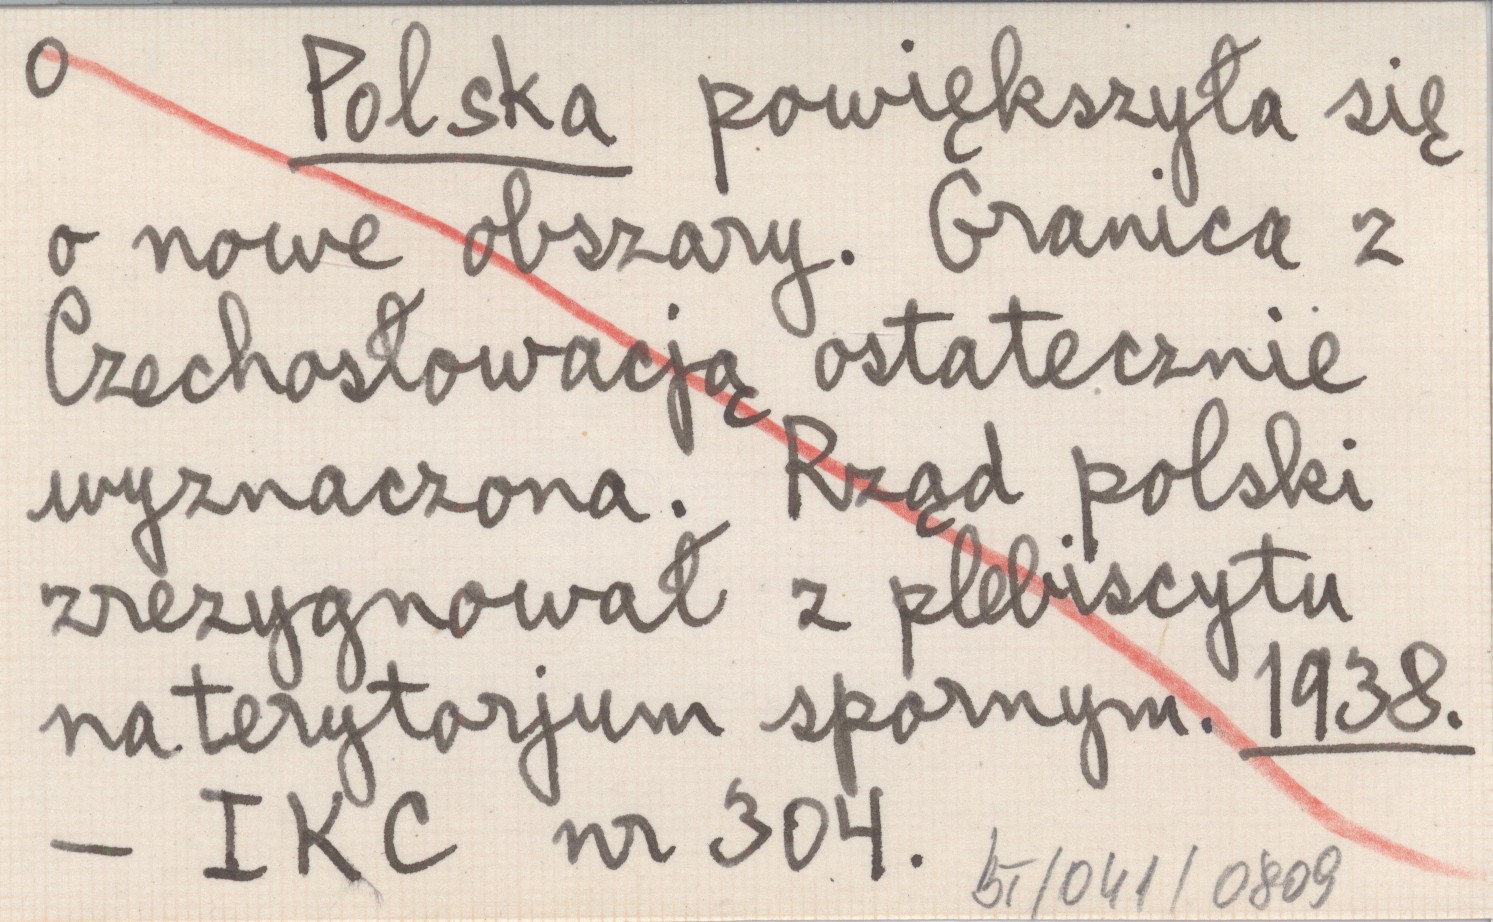 o Polska powiększyła się
o nowe obszary. Granica z
Czechosłowacją ostatecznie
wyznaczona. Rząd polski
zrezygnował z plebiscytu
na terytorjum spornym. 1938.
— IKC nr 304.
/041/0809